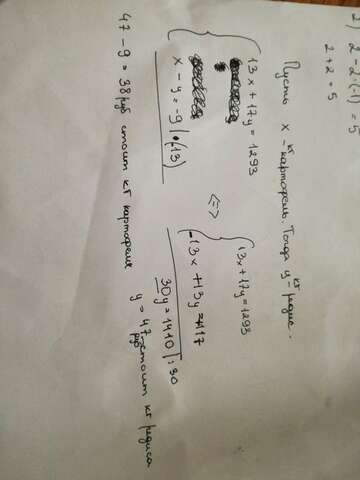 2) 2-2·(-1)=5
2+2=5
Пусть x кг - картофель. Тогда y кг - редис.
{ 13x+17y=1293
x-y=-9 |·(-13)
<=> { 13x+17y=1293
-13x+13y=117
30y=1410 |:30
y=47 руб - стоит кг редиса
47-9=38 руб стоит кг картофеля